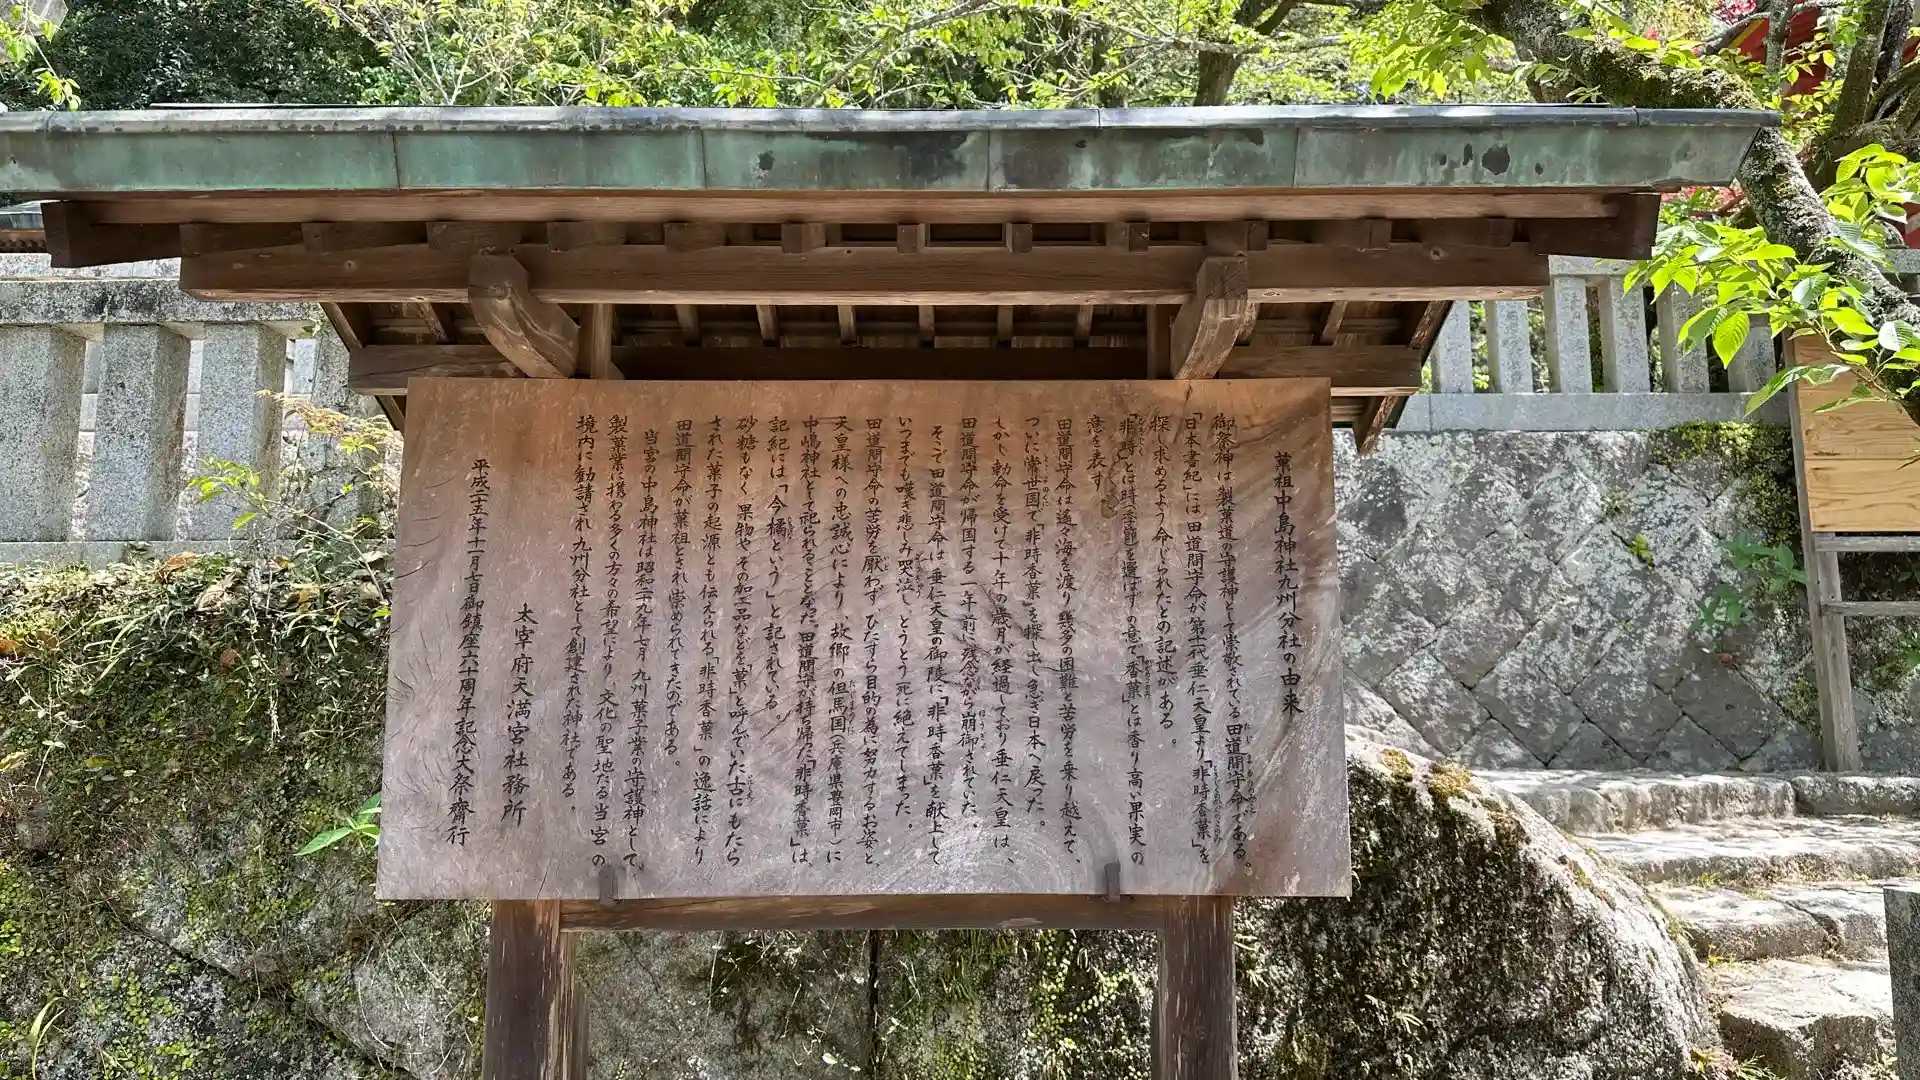 菓祖中島神社九州分社の由来
御祭神は製菓道の守護神として崇敬されている田道間守命である。
「日本書紀」には田道間守命が第十一代垂仁天皇より「非時香菓」を
探し求めるよう命じられたとの記述がある。
「非時」とは時(季節)を選ばずの意で「香菓」とは香り高い果実の
意を表す。
田道間守命は遙々海を渡り幾多の困難と苦労を乗り越えて、
ついに常世国で「非時香菓」を探し出し急ぎ日本へ戻った。
しかし勅命を受けて十年の歳月が経過しており垂仁天皇は、
田道間守命が帰国する一年前に残念ながら崩御されていた。
そこで田道間守命は垂仁天皇の御陵に「非時香菓」を献上して
いつまでも嘆き悲しみ哭泣し、とうとう死に絶えてしまった。
田道間守命の苦労を厭わずひたすら目的の為に努力するお姿と
天皇様への忠誠心により、故郷の但馬国(兵庫県豊岡市)に
中嶋神社として祀られることとなった。田道間守が持ち帰た「非時香菓」は、
記紀には「今橘という」と記されている。
砂糖もなく果物やその加工品などを「菓」と呼んでいた古にもたら
された菓子の起源とも伝えられる「非時香菓」の逸話により
田道間守命が菓祖とされ崇められてきたのである。
当宮の中島神社は昭和二九年七月九州菓子業の守護神として、
製菓業に携わる多くの方々の希望により、文化の聖地たる当宮の
境内に勧請され九州分社として創建された神社である。
太宰府天満宮社務所
平成二五年十一月七日御鎮座六十周年記念大祭齋行